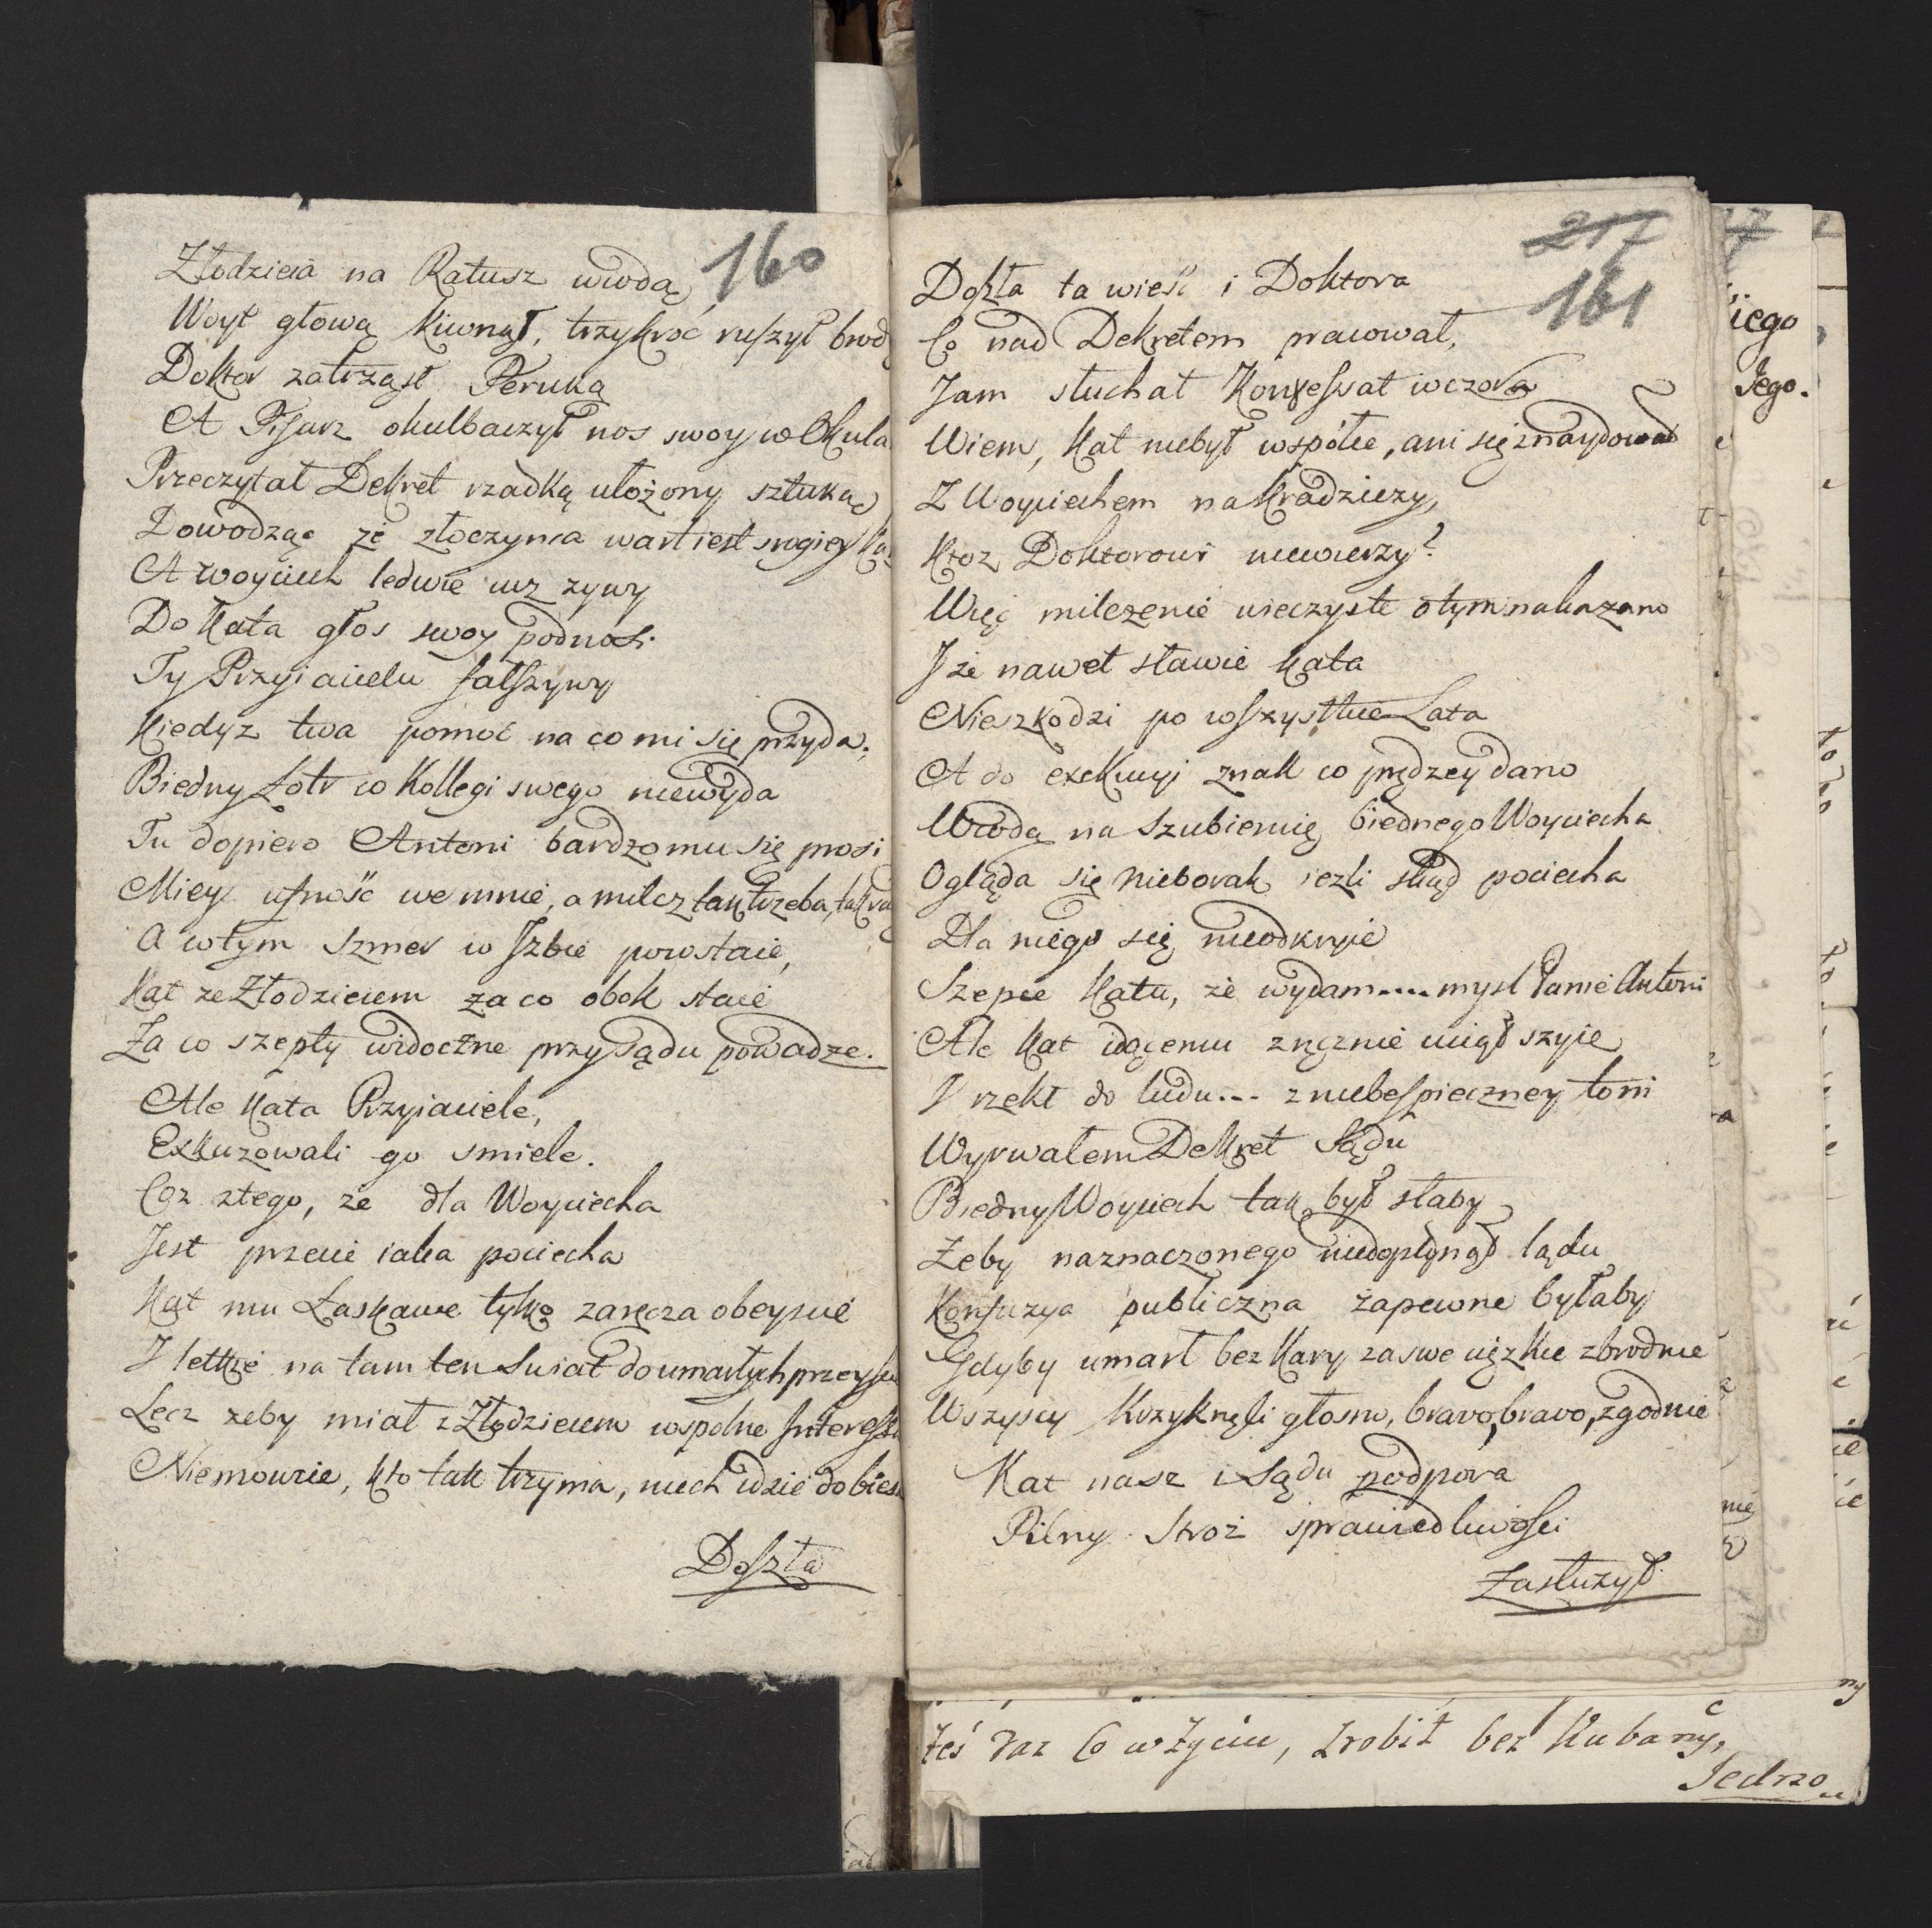 160
Złodzieia na Ratusz wiodą,
Woyt głową kiwnął, trzykroć ruszył brod
Doktor zatrząsł Peruką
A Pisarz okulbaczył nos swoy w Okula
Przeczytał Dekret rzadką ułożony sztuką
Dowodząc że złoczynca wart iest srogiey Ka
A Woyciech ledwie iuz zywy
Do Kata głos swoy podnosi
Ty Przyiacielu fałszywy
Kiedyz twa pomoć na co mi się przyda;
Biedny Łotr co Kollegi swego niewyda
Tu dopiero Antoni bardzo mu się prosi
Miey ufność we mnie, a milcz tak trzeba,
A wtym szmer w Jzbie powstaie,
Kat ze Złodzieiem za co obok staie
Za co szepty widoczne przy sądu powadze.
Ale Kata Przyiaciele,
Exkuzowali go smiele.
Coz ztego, że dla Woyciecha
Jest przecie iaka pociecha
Kat mu Łaskawe tylko zaręcza obeyscie
I lekkie na tam ten Swiat do umarłych przeyscie
Lecz zeby miał z Złodzieiem wspolne Jnteressa
Niemowcie, kto tak trzyma, niech idzie do biesa
Doszła
217
161
Doszła ta wieść i Doktora
Co nad Dekretem pracował,
Jam słuchał Konfessat wczora
Wiem, Kat niebył wspólce, ani się znaydował
Z Woyciechem na Kradziezy,
Ktoz Doktorowi niewierzy?
Więc milczenie wieczyste o tym nakazano
I że nawet sławie Kata
Nieszkodzi po wszystkie Lata
A do exekucyi znak co prędzey dano
Wiodą na Szubienicę biednego Woyciecha
Ogląda się nieborak iezli skąd pociecha
Dla niego się nieodkryie
Szepce Katu, że wydam.... mysl Panie Antoni
Ale Kat idącemu zręcznie uciął szyie
I rzekł do ludu... z niebespieczney toni
Wyrwałem Dekret Sądu
Biedny Woyciech tak był słaby
Żeby naznaczonego niedopłynął lądu
Konfuzya publiczna zapewne byłaby
Gdyby umarł bez Kary za swe cięzkie zbrodnie
Wszyscy Krzyknęli głosno, bravo, bravo, zgodnie
Kat nasz i Sądu podpora
Pilny Stroż sprawiedliwości
Zasłużył
żeś raz Co w Życiu, zrobił bez Kubany,